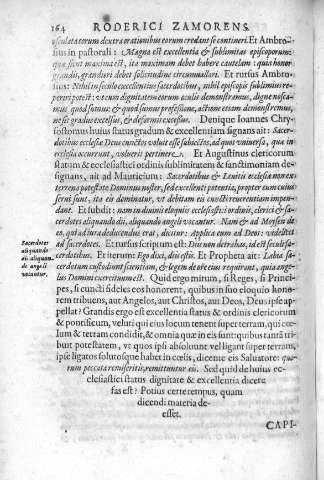 164 RODERICI ZAMORENS.
osculata eorum dextra orationibus eorum credant se contineri. Et Ambro-
sius in pastorali: Magna est excellentia & sublimitas episcoporum:
quæ sicut maxima est, ita maximam debet habere cautelam: quia honor
grandis, grandiori debet solicitudine circumuallari. Et rursus Ambro-
sius: Nihil in seculo excellentius sacerdotibus, nihil episcopis sublimius re-
periri potest: vt cum dignitatem eorum oculis demonstramus, digne nosca-
mus quod sumus: & quod sumus professione, actione etiam demonstremus,
ne sit gradus excelsus, & deformis excessus. Denique Ioannes Chry-
sostomus huius status gradum & excellentiam signans ait: Sacer-
dotibus ecclesiæ Deus cunctos voluit esse subiectos, ad quos vniuersa, quæ in
ecclesia occurrunt, voluerit pertinere. Et Augustinus clericorum
statum & ecclesiastici ordinis sublimitatem & sanctimoniam de-
signans, ait ad Mauricium: Sacerdotibus & Leuitis ecclesiæ non ex
terrena potestate Dominus noster, sed excellenti potentia, propter eum cuius
serui sunt, ita eis dominatur, vt debitam eis cuncti reuerentiam impen-
dant. Et subdit: nam in diuinis eloquiis ecclesiastici ordinis, clerici & sa-
cerdotes aliquando dii, aliquando angeli vocantur. Nam & ad Moysen de
eo, qui ad iura deducendus erat, dicitur: Applica eum ad Deos: videlicet
ad sacerdotes. Et rursus scriptum est: Diis non detrahas, id est secule sa-
cerdotibus. Et iterum: Ego dixi, dii estis. Et Propheta ait: Labia sa-
cerdotum custodiunt scientiam, & legem de ore eius requirunt, quia ange-
lus Domini exercituum est. Quid ergo mirum, si Reges, si Princi-
pes, si cuncti fideles eos honorent, quibus in suo eloquio hono-
rem tribuens, aut Angelos, aut Christos, aut Deos, Deus ipse ap-
pellat? Grandis ergo est excellentia status & ordinis clericorum
& pontificum, veluti qui eius locum tenent super terram, qui cœ-
lum & terram condidit, & omnia quæ in eis sunt: quibus tanta tri-
buit potestatem, vt quos ipsi absoluunt vel ligant super terram,
ipse ligatos solutosque habet in cœlis, dicente eis Saluatore: quo-
rum peccata remiseritis, remittuntur eis. Sed quid de huius ec-
clesiastici status dignitate & excellentia dicere
fas est? Potius certe tempus, quam
dicendi materia de-
esset.
Sacerdotes
aliquando
dii aliquan
do angeli
vocantur.
CAPI-